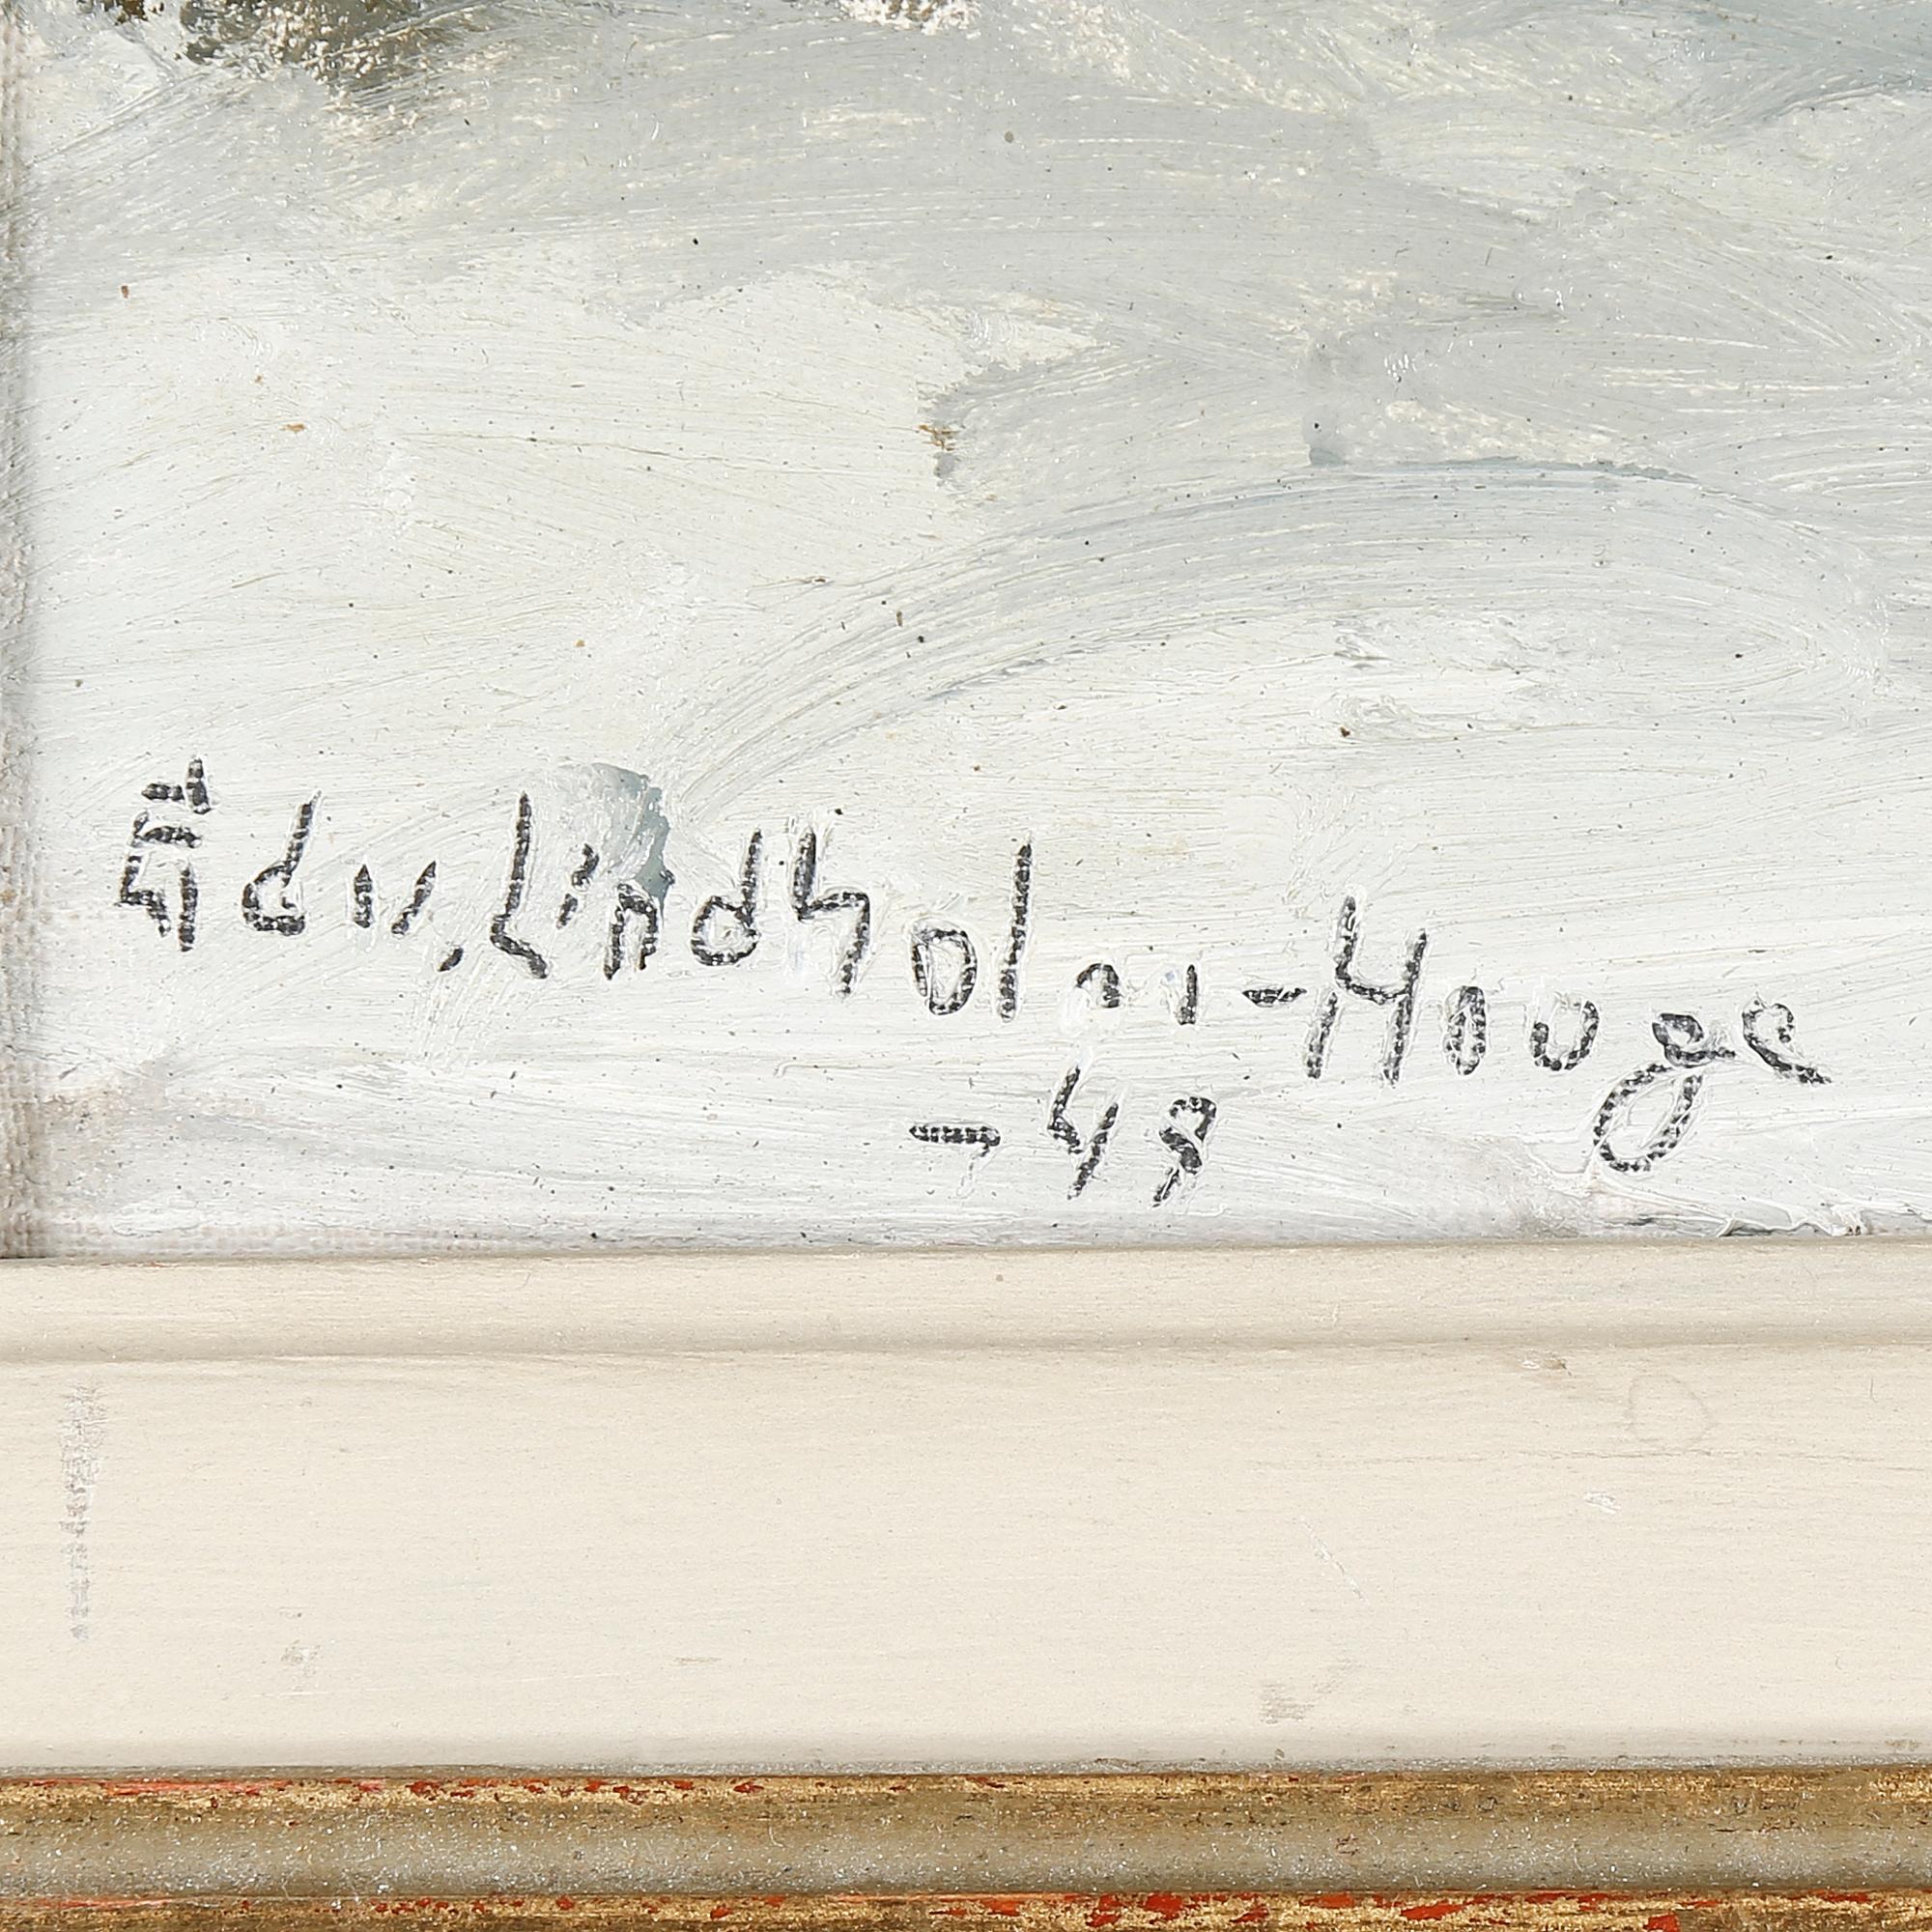 Edv. Lindholm-Houge
- 48